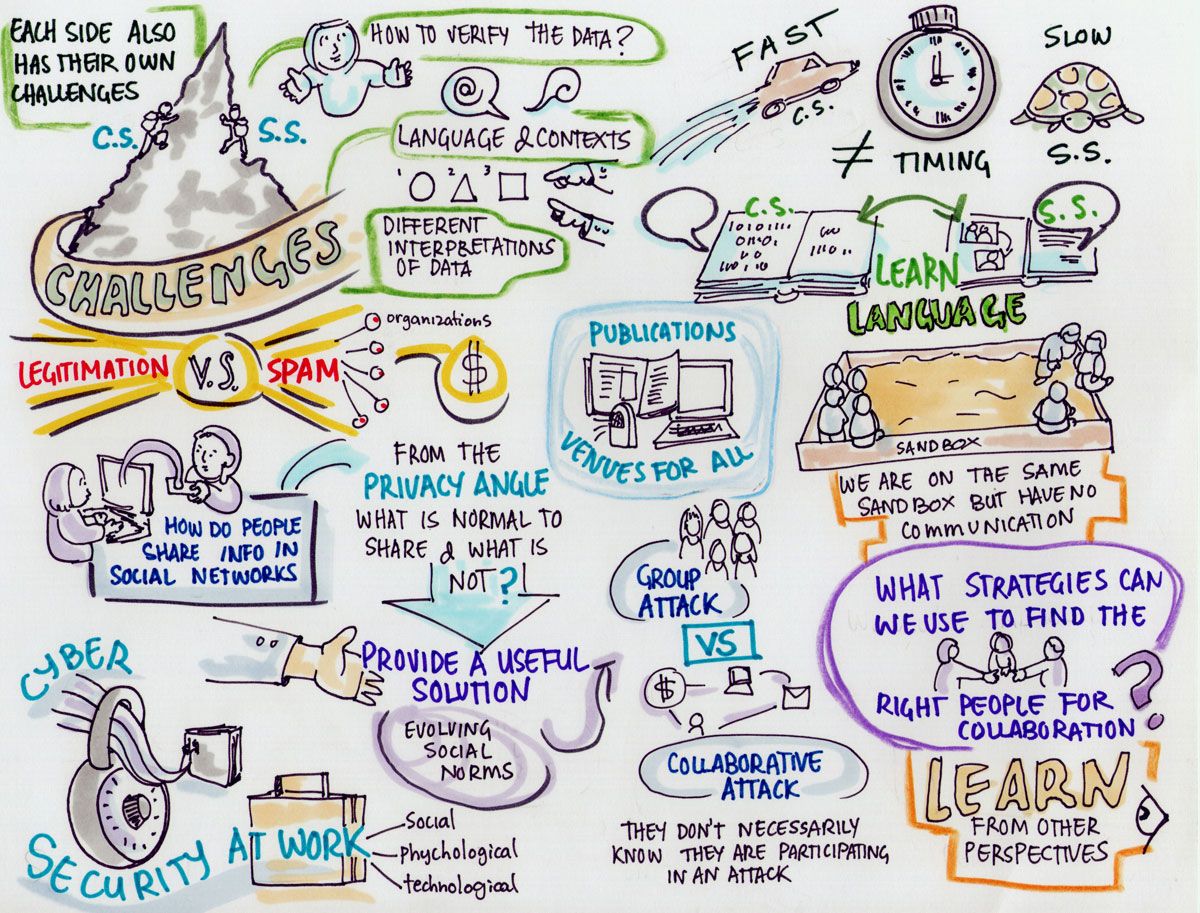 EACH SIDE ALSO
HAS THEIR OWN
CHALLENGES
C.S.
S.S.
CHALLENGES
HOW TO VERIFY THE DATA?
LANGUAGE & CONTEXTS
1 2 3
DIFFERENT
INTERPRETATIONS
OF DATA
FAST
C.S.
≠ TIMING
SLOW
S.S.
C.S.
S.S.
LEARN
LANGUAGE
LEGITIMATION
V.S.
SPAM
organizations
$
PUBLICATIONS
VENUES FOR ALL
SANDBOX
WE ARE ON THE SAME
SANDBOX BUT HAVE NO
COMMUNICATION
HOW DO PEOPLE
SHARE INFO IN
SOCIAL NETWORKS
FROM THE
PRIVACY ANGLE
WHAT IS NORMAL TO
SHARE & WHAT IS
NOT?
PROVIDE A USEFUL
SOLUTION
EVOLVING
SOCIAL
NORMS
GROUP
ATTACK
VS
$
COLLABORATIVE
ATTACK
THEY DON'T NECESSARILY
KNOW THEY ARE PARTICIPATING
IN AN ATTACK
WHAT STRATEGIES CAN
WE USE TO FIND THE
RIGHT PEOPLE FOR
COLLABORATION
?
LEARN
FROM OTHER
PERSPECTIVES
CYBER
SECURITY AT WORK
Social
phychological
technological